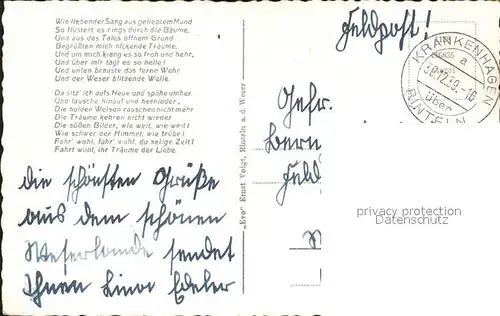 Wie liebender Sang aus geliebtem Mund
So flüstert es rings durch die Bäume,
Und aus des Tales offnem Grund
Begrüßten mich nickende Träume,
Und um mich klang es so froh und hehr,
Und über mir tagt es so helle!
Und unten brauste das ferne Wehr
Und der Weser blitzende Welle.
Da sitz' ich aufs Neue und spähe umher
Und lausche hinauf und hernieder,
Die holden Weisen rauschen nicht mehr
Die Träume kehren nicht wieder
Die süßen Bilder, wie weit, wie weit!
Wie schwer der Himmel, wie trübe!
Fahr' wohl, fahr' wohl, du selige Zeit!
Fahrt wohl, ihr Träume der Liebe.
die schönsten Grüße
aus dem schönen
Weserlande sendet
Ihnen
„Evo" Ernst Voigt, Rinteln a. d. Weser
Feldpost!
KRANKENHAGEN
a
30.12.39.-16
über
RINTELN
Gefr.
Bern
Feld
privacy protection
Datenschutz